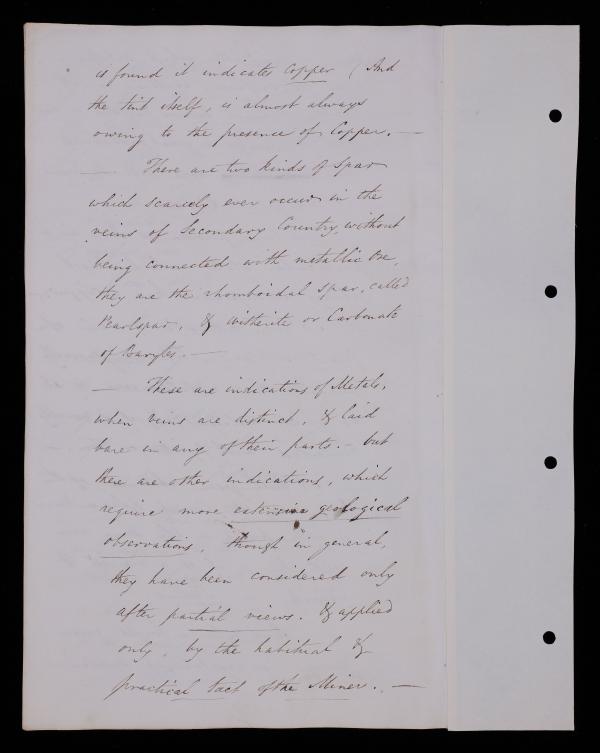 is found it indicates Copper (And
the tint itself, is almost always
owing to the presence of Copper. —
— There are two kinds of Spar
which scarcely ever occur in the
veins of Secondary Country, without
being connected with metallic Ore,
they are the rhomboidal Spar, called
Pearlspar, & witherite or Carbonate
of Barytes. —
— These are indications of Metals,
when veins are distinct, & laid
bare in any of their parts. — but
there are other indications, which
require more extensive geological
observations, though in general,
they have been considered only
after partial views. & applied
only, by the habitual &
practical tact of the Miner. —